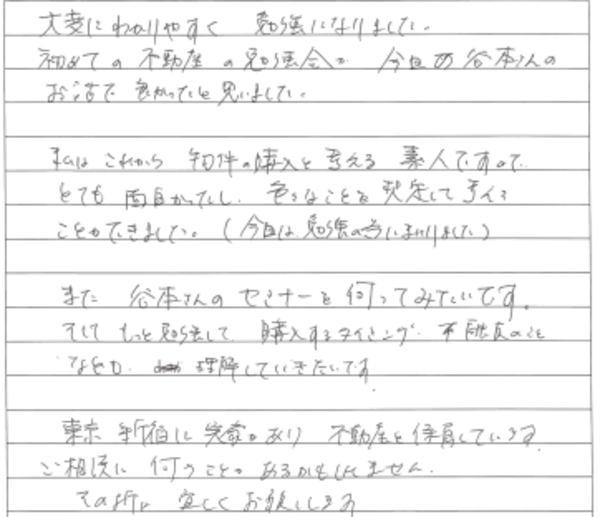 大変にわかりやすく 勉強になりました。
初めての不動産の勉強会が 今回の谷本さんの
お話で良かったと思いました。
私はこれから 物件の購入を考える 素人ですので
とても面白かったし、色々なことを想定して考える
ことができました。(今日は勉強の為にまいりました)
また 谷本さんのセミナーを伺ってみたいです。
そして もっと勉強して 購入するタイミング、不動産のこと
なども、理解していきたいです
東京 新宿に実家があり 不動産を保有しています。
ご相談に伺うことがあるかもしれません。
その折は 宜しくお願いします